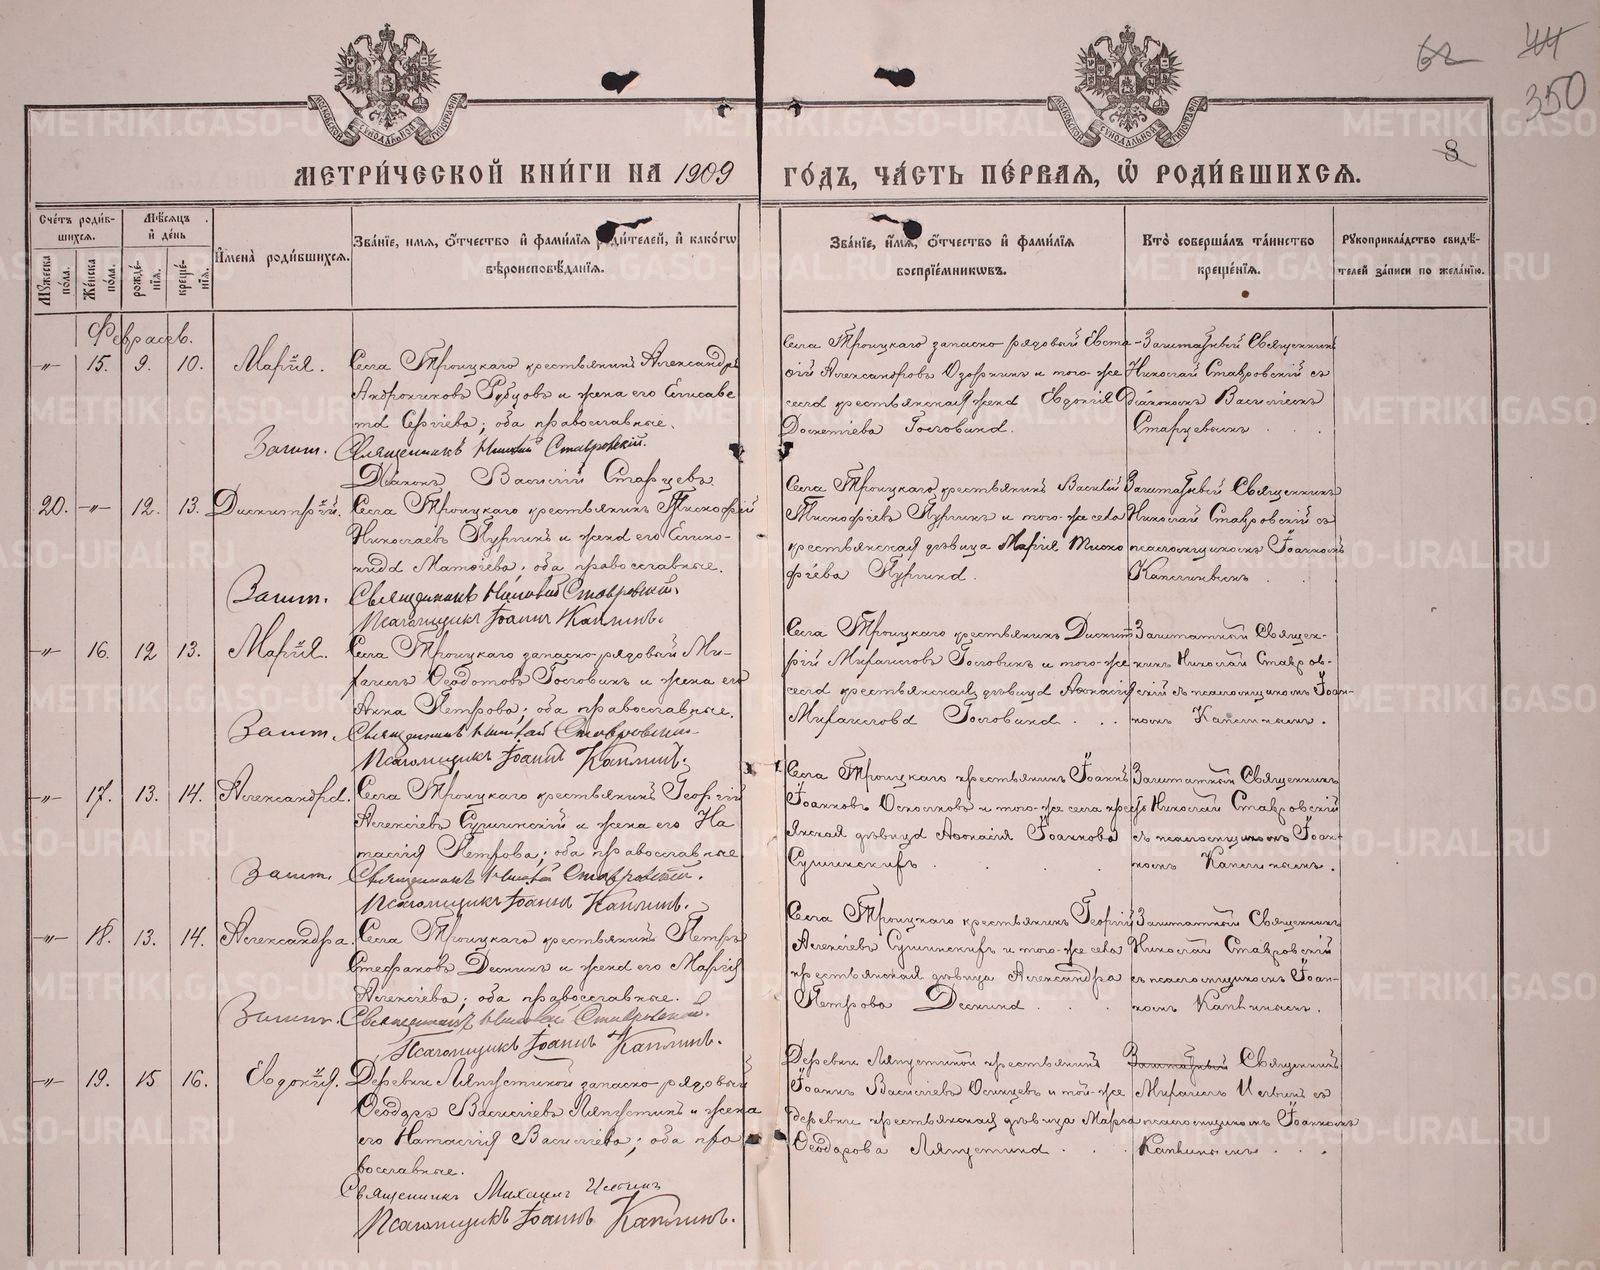 62
44
350
8
МЕТРИ́ЧЕСКОЙ КНИ́ГИ НА 1909 ГО́ДЪ, ЧА́СТЬ ПЕ́РВАЯ, Ѽ РОДИ́ВШИХСЯ.
Сче́тъ роди́в-
шихся.
Мѣ́сяцъ
и де́нь
Мꙋ́жеска по́ла.
Же́нска по́ла.
рожде́-
нїя.
креще́-
нїя.
Имена̀ роди́вшихся.
Зва́нїе, имя, о́тчество и фами́лїя роди́телей, и како́гѡ
вѣроисповѣ́данїя.
Зва́нїе, и́мя, о́тчество и фами́лїя
воспрїе́мниковъ.
Кто̀ соверша́лъ та́инство
креще́нїя.
Рꙋкоприкла́дство свидѣ́-
телей за́писи по жела́нїю.
Февраль.
-"- 15. 9. 10. Марія. Села Троицкаго крестьянинъ Александръ
Андрониковъ Рубцовъ и жена его Елисаве
та Сергіева; оба православные.
Зашт. Священникъ Николай Ставровскій.
Діаконъ Василій Старцевъ
Села Троицкаго запасно-рядовый Евста-
фій Александровъ и того-же
села крестьянская жена Евдокія
Гостовина.
Заштатный Священникъ
Николай Ставровскій съ
Діакономъ Василіемъ
Старцевымъ
20. -"- 12. 13. Димитрій. Села Троицкаго крестьянинъ Тимофей
Николаевъ Пургинъ и жена его Елико-
нида Матѳіева; оба православные.
Зашт. Священникъ Николай Ставровскій.
Псаломщикъ Іоаннъ Каплинъ.
Села Троицкаго крестьянинъ Василій
Тимофіевъ Пургинъ и того-же села
крестьянская дѣвица Марія Тимо
фіева Пургина.
Заштатный Священникъ
Николай Ставровскій съ
псаломщикомъ Іоанномъ
Каплинымъ
-"- 16. 12 13. Марія. Села Троицкаго запасно-рядовый Ми-
хаилъ Ѳеодотовъ Гостовинъ и жена его
Анна Петрова; оба православные.
Зашт. Священникъ Николай Ставровскій
Псаломщикъ Іоаннъ Каплинъ.
Села Троицкаго крестьянинъ Димит-
рій Михаиловъ Гостовинъ и того-же
села крестьянская дѣвица Аѳонасія
Михаилова Гостовина.
Заштатный Священ-
никъ Николай Ставров-
скій съ псаломщикомъ Іоан-
номъ Каплинымъ.
-"- 17. 13. 14. Александра. Села Троицкаго крестьянинъ Георгій
Алексіевъ Сушинскій и жена его На
тасія Петрова; оба православные
Зашт. Священникъ Николай Ставровскій.
Псаломщикъ Іоаннъ Каплинъ.
Села Троицкаго крестьянинъ Іоаннъ
Іоанновъ Осколковъ и того-же села кресть
янская дѣвица Аѳонасія Іоаннова
Сушинскихъ
Заштатный Священникъ
Николай Ставровскій
съ псаломщикомъ Іоан-
номъ Каплинымъ.
-"- 18. 13. 14. Александра. Села Троицкаго крестьянинъ Петръ
Стефановъ Деминъ и жена его Марія
Алексіева; оба православные.
Зашт. Священникъ Николай Ставровскій.
Псаломщикъ Іоаннъ Каплинъ.
Села Троицкаго крестьянинъ Георгій
Алексіевъ Сушинскихъ и того-же села
крестьянская дѣвица Александра
Петрова Демина
Заштатный Священникъ
Николай Ставровскій
съ псаломщикомъ Іоан-
номъ Каплинымъ.
-"- 19. 15 16. Евдокія. Деревни Ляпустиной запасно-рядовый
Ѳеодоръ Василіевъ Ляпустинъ и жена
его Натасія Василіева; оба пра
вославные.
Священникъ Михаилъ
Псаломщикъ Іоаннъ Каплинъ.
Деревни Ляпустиной крестьянинъ
Іоаннъ Василіевъ Осинцевъ и той-же
деревни крестьянская дѣвица Марѳа
Ѳеодорова Ляпустина
Заштатный Священникъ
Михаилъ съ
псаломщикомъ Іоанномъ
Каплинымъ